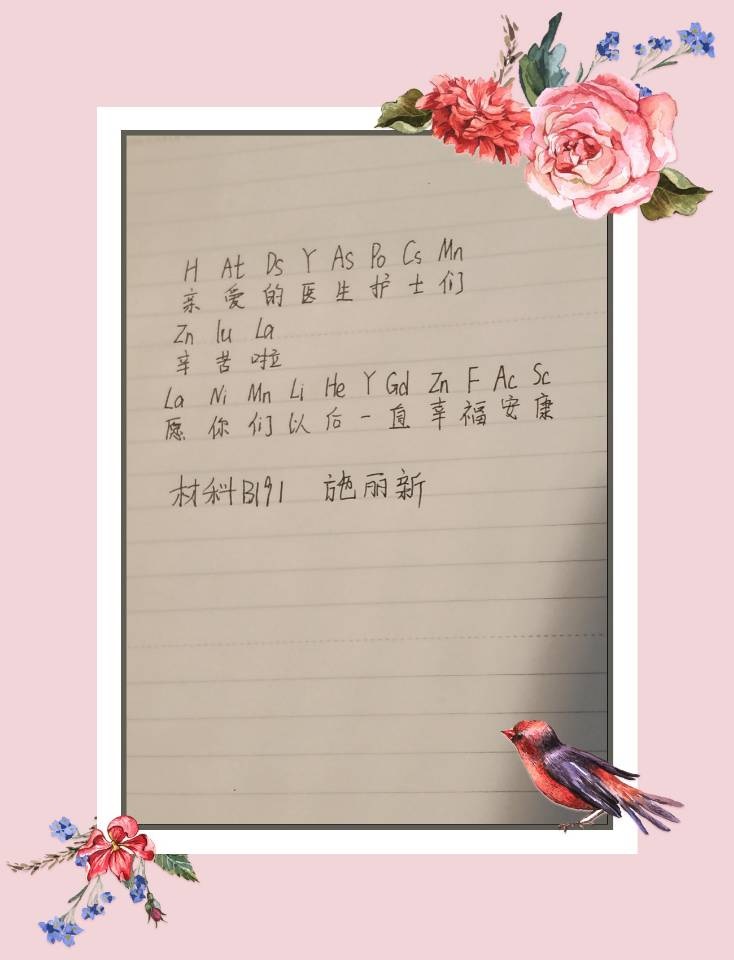 H At Ds Y As Po Cs Mn
亲爱的医生护士们
Zn lu La
辛苦啦
La Ni Mn Li He Y Gd Zn F Ac Sc
愿你们以后一直辛福安康
材料B191 施丽新